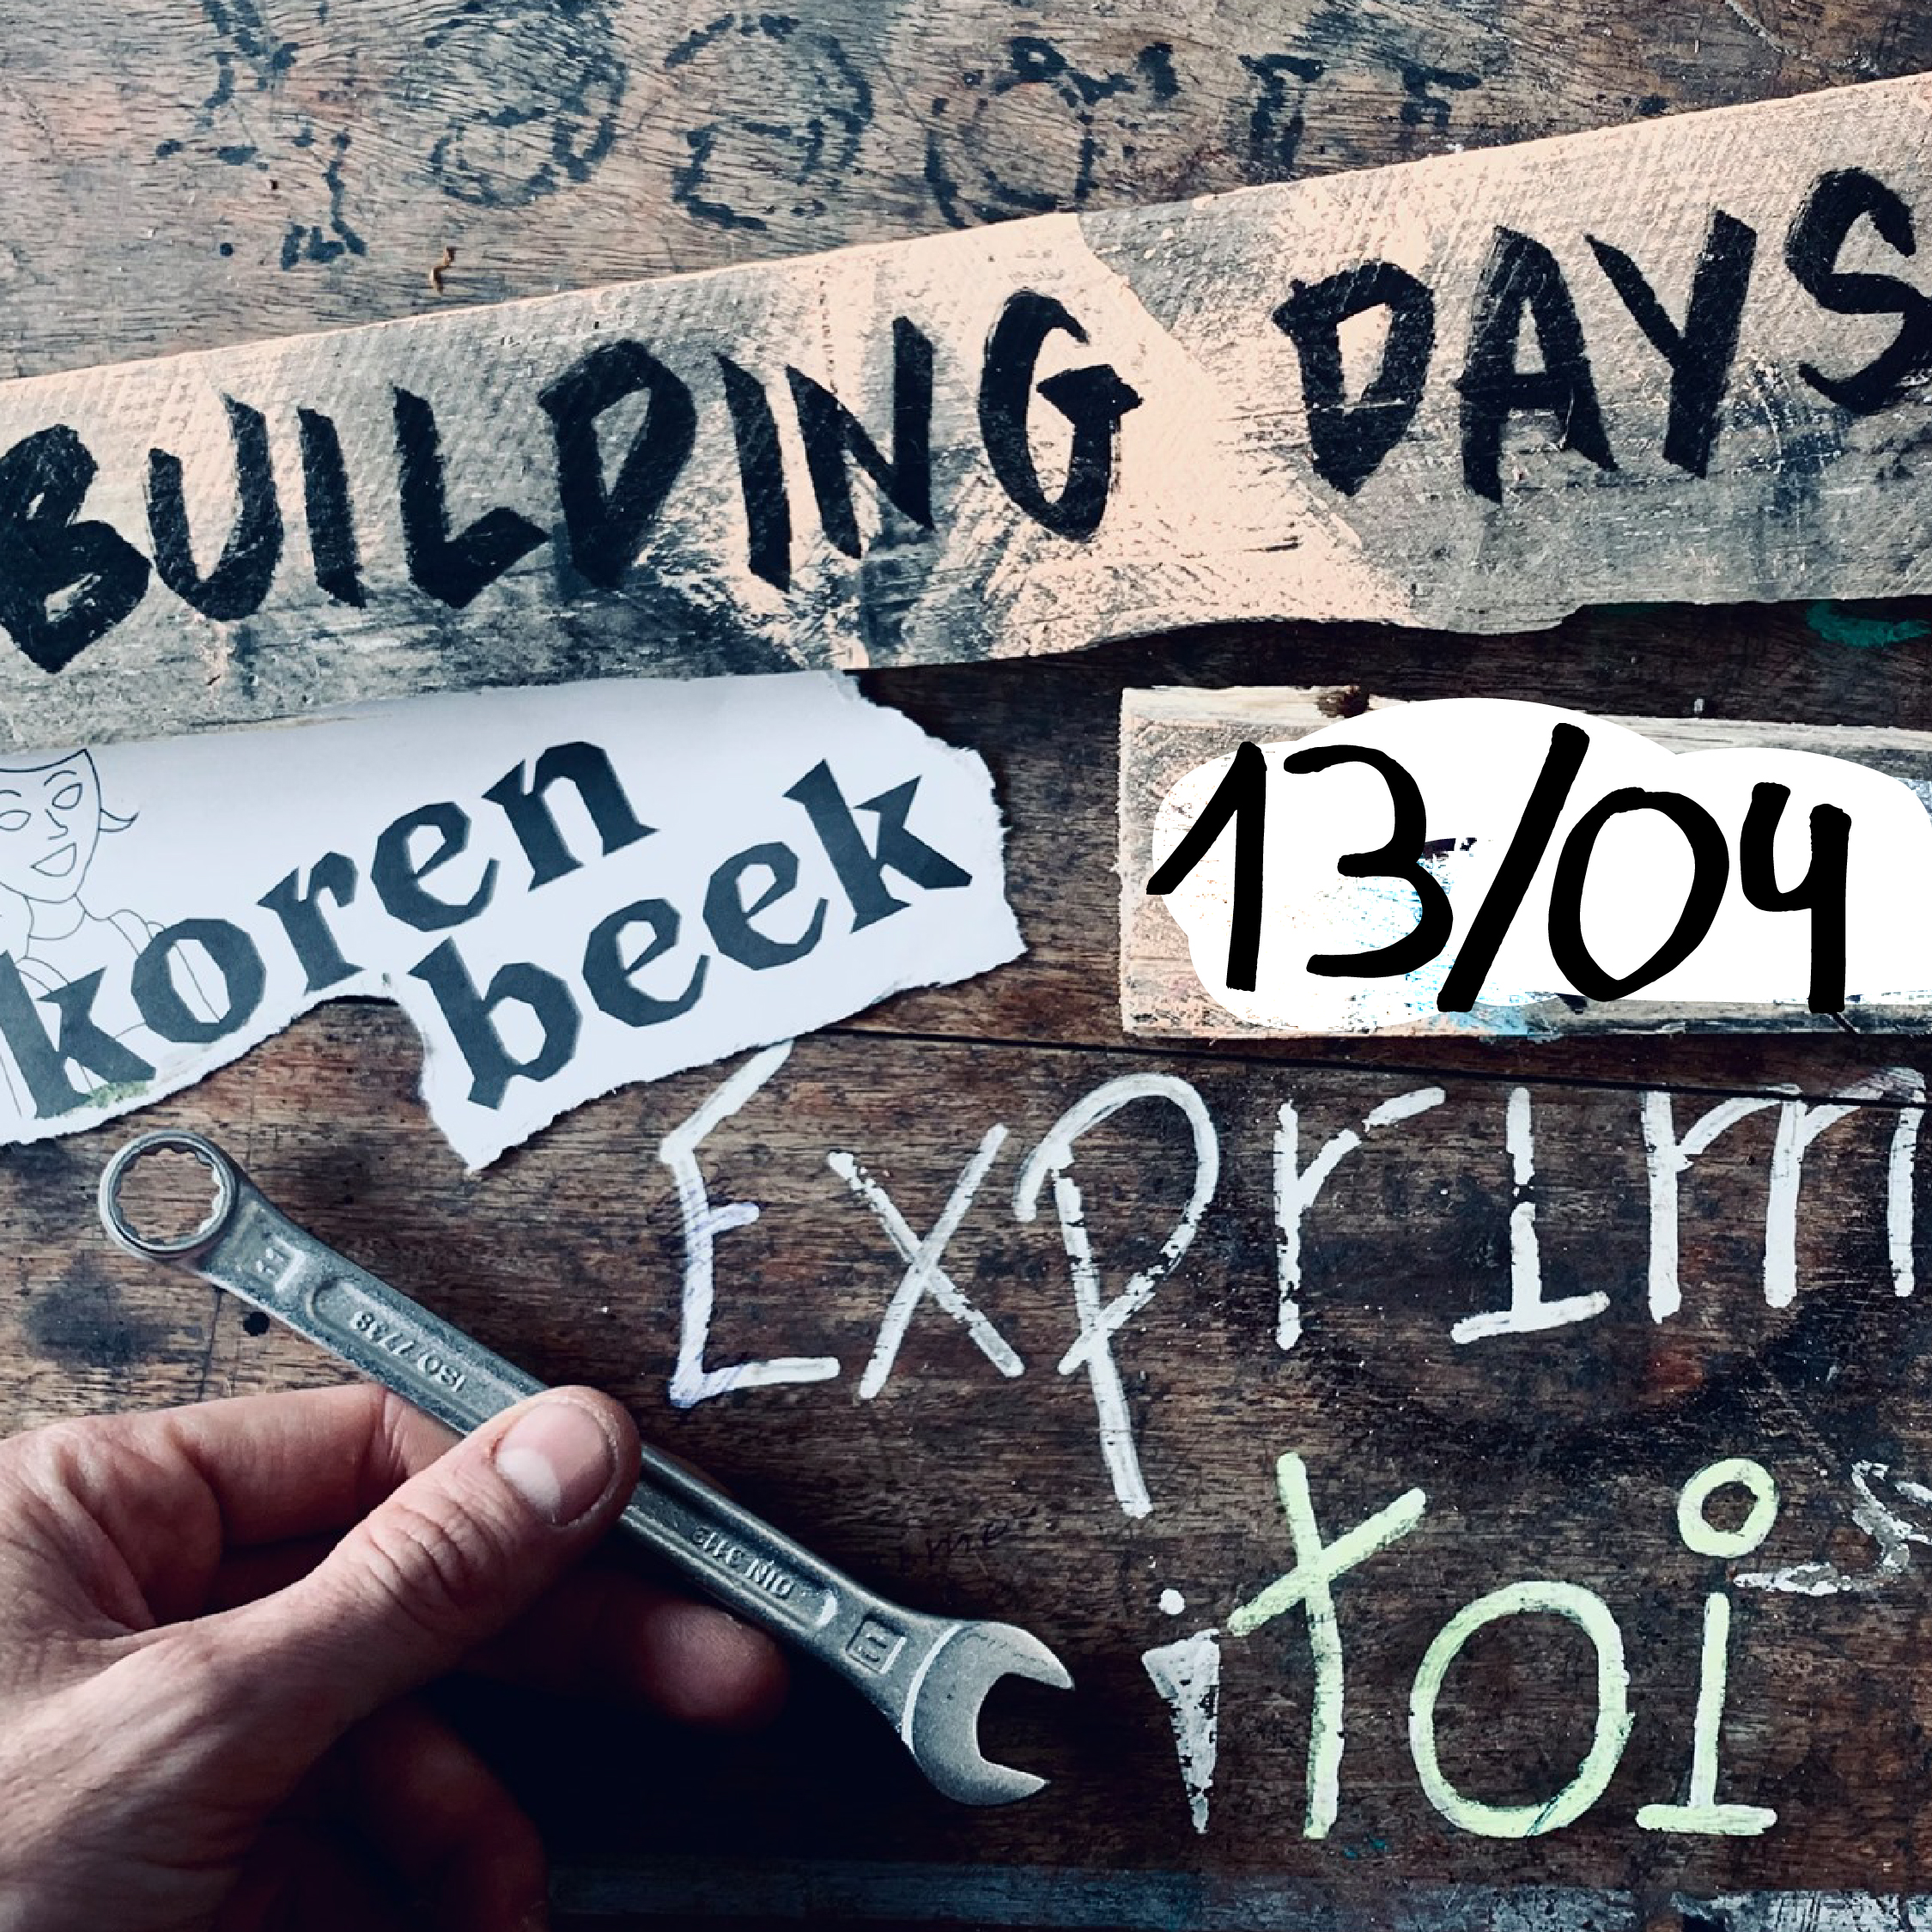 BUILDING DAYS
koren
beek
13/04
Exprim
¡Toi
11
ISO 7738
DIN 3113
11